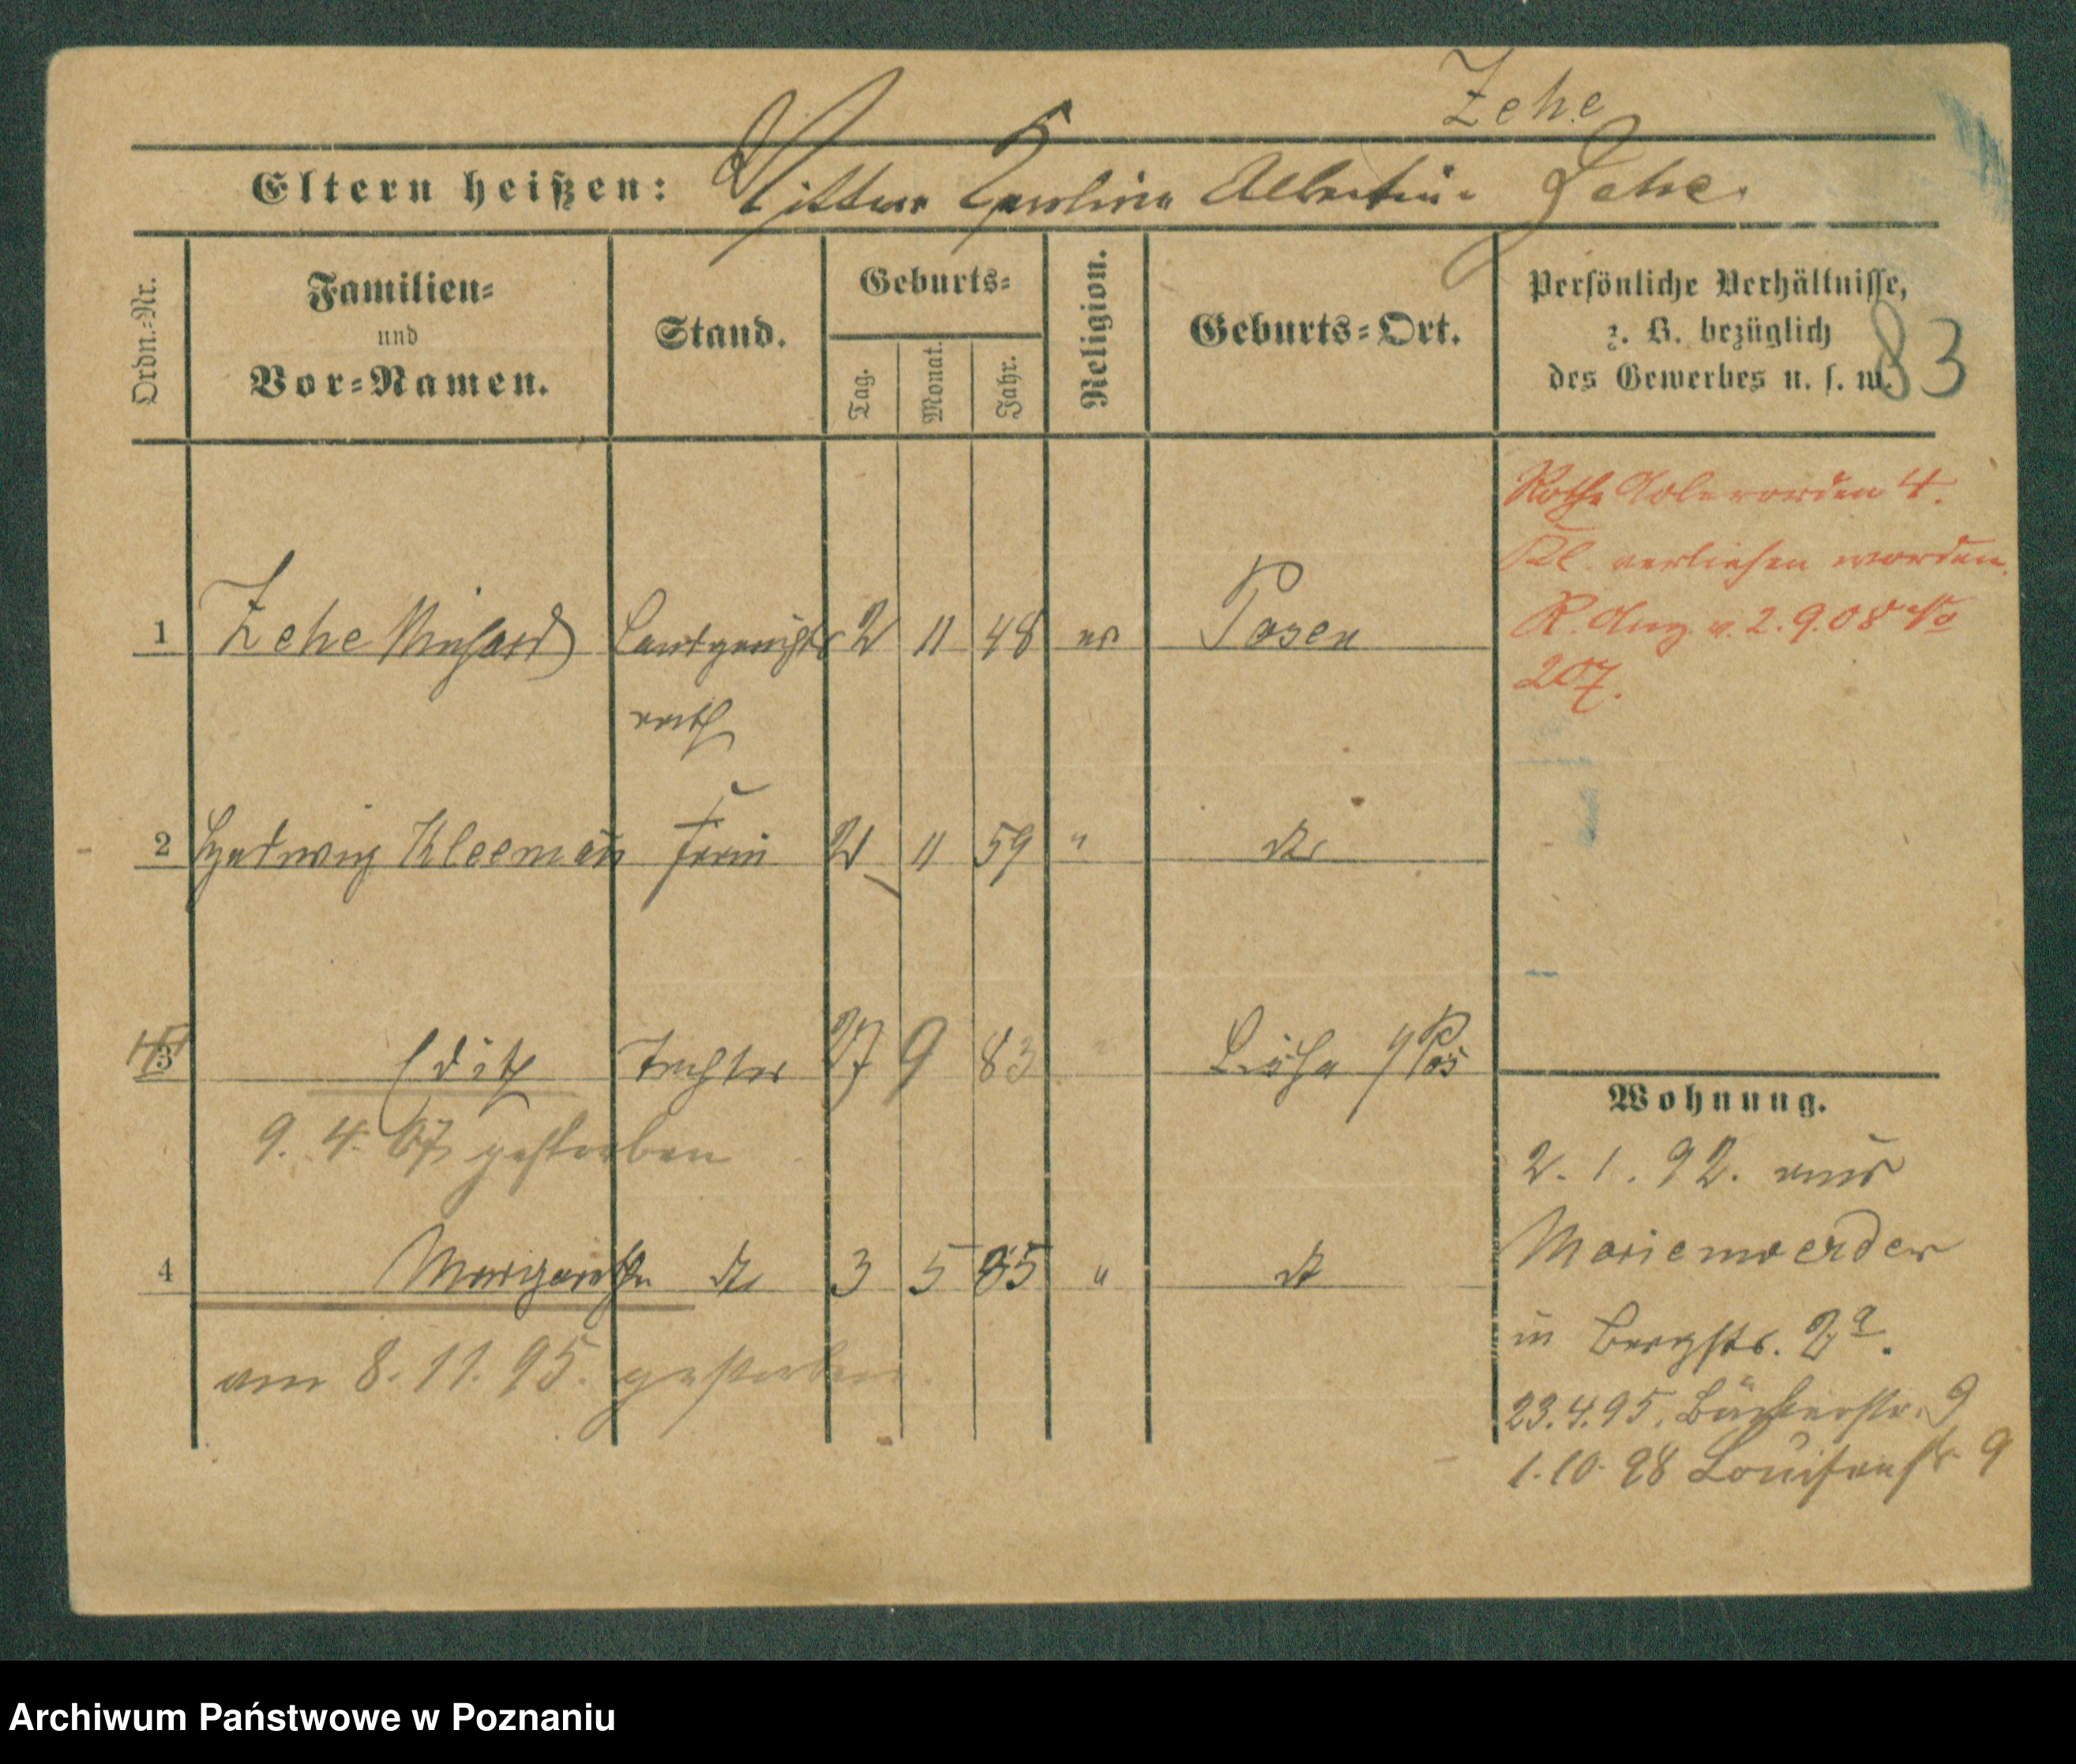 Zehe
Eltern heißen: Wittwe Karoline Albertine Zehe.
Ordn.-Nr.
Familien-
und
Vor-Namen.
Stand.
Geburts-
Tag.
Monat.
Jahr.
Religion.
Geburts-Ort.
Persönliche Verhältnisse,
z. B. bezüglich
des Gewerbes u. s. w.
83
Rothe Adlerorden 4.
Kl. verliehen worden.
R. Anz. v. 2.9.08 No
207.
1 Zehe Richard Landgerichts 2 11 48 ev Posen
rath
2 Hedwig Kleeman Frau 2 11 59 " do
3 Edith Tochter 27 9 83 Lissa i/Pos
9. 4. 07 gestorben
4 Margarethe do 3 5 85 " do
am 8. 11. 95. gestorben
Wohnung.
2. 1. 92. aus
Marienwerder
in Bergstr. 2a.
23.4.95. Bäckerstr. 9
1.10.98 Louisenstr. 9
Archiwum Państwowe w Poznaniu